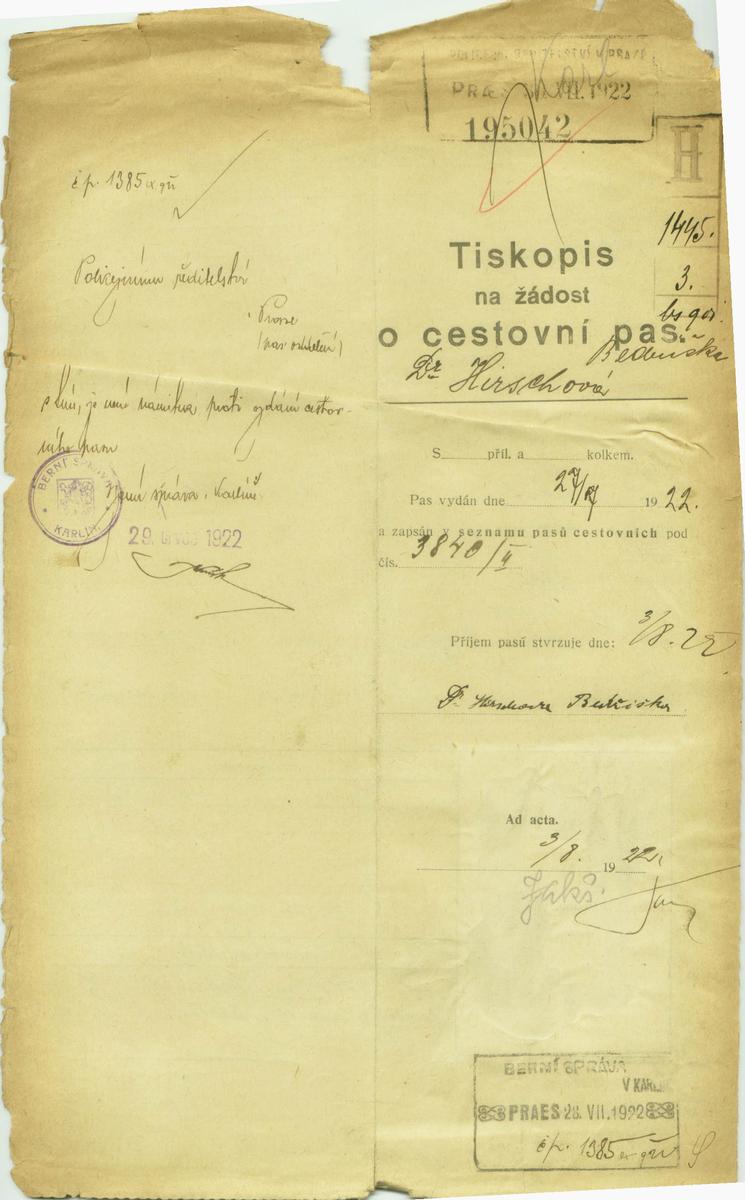 č.p. 1385
Policejnímu ředitelství
v Praze
(pas. oddělení)
s tím, že není námitek proti vydání cestov-
ního pasu
Berní správa Karlín
BERNÍ SPRÁVA
KARLÍN
29. 1922
PRAES VII. 1922
195042
H
1445.
3.
Tiskopis
na žádost
o cestovní pas.
Bedřiška
Dr Hirschová
S příl. a kolkem.
Pas vydán dne 29/7 1922.
a zapsán v seznamu pasů cestovních pod
čís. 3840/II
Příjem pasů stvrzuje dne: 3/8. 22
Dr Hirschova Bedřiška
Ad acta.
3/8. 1922.
Jakš.
BERNÍ SPRÁVA
V KARL
PRAES 28. VII. 1922
č.p. 1385